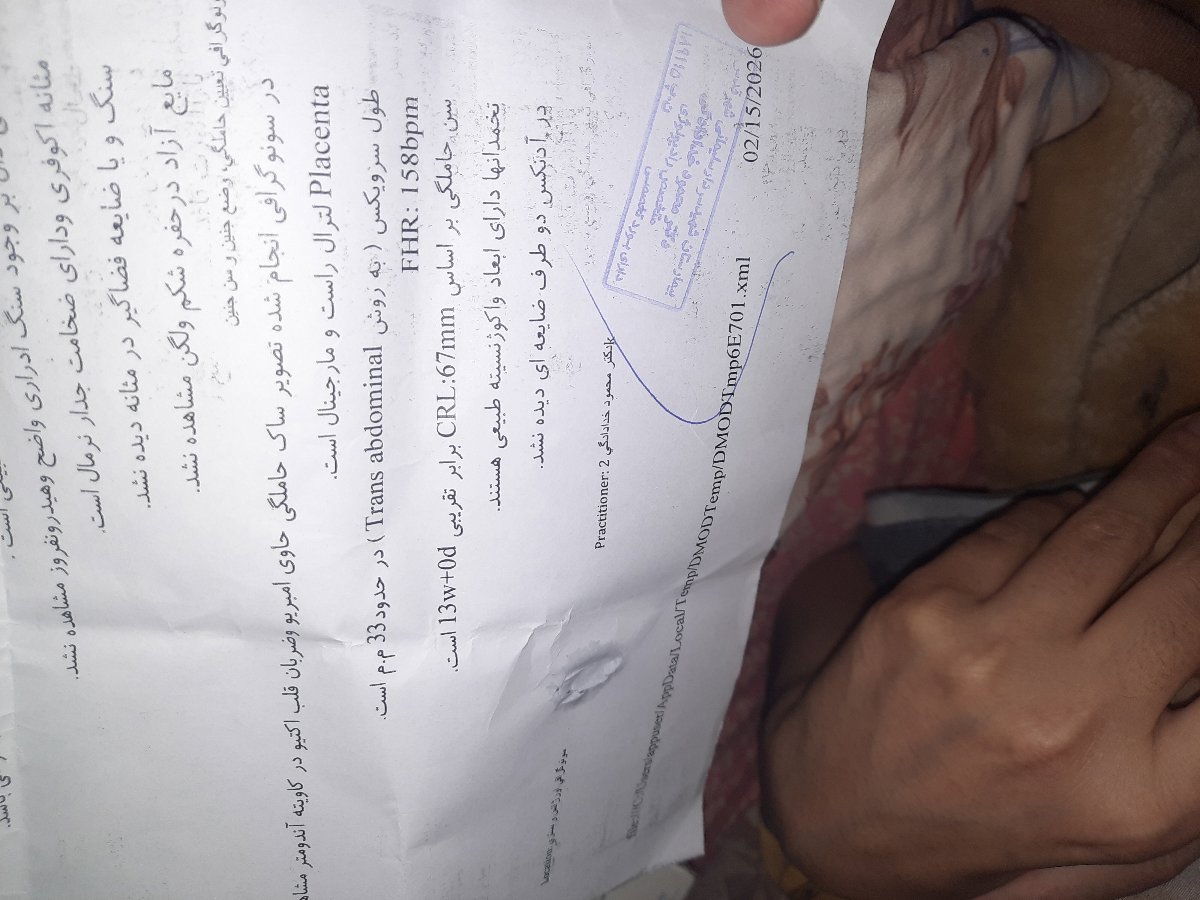 بر وجود سنگ ادراری واضح وهیدرونفروز مشاهده نشد.
مثانه اکوفری ودارای ضخامت جدار نرمال است.
سنگ و یا ضایعه فضاگیر در مثانه دیده نشد.
مایع آزاد درحفره شکم ولگن مشاهده نشد.
سونوگرافي تعيين حاملگي، وضع جنين و سن جنين
در سونوگرافی انجام شده تصویر ساک حاملگی حاوی امبریو وضربان قلب اکتیو در کاویته آندومتر
Placenta لترال راست و مارجینال است.
طول سرویکس ( به روش Trans abdominal ) در حدود33 م.م است.
FHR: 158bpm
سن حاملگی بر اساس CRL:67mm برابر تقریبی 13w+0d است.
تخمدانها دارای ابعاد واکوژنسیته طبیعی هستند.
در آدنکس دو طرف ضایعه ای دیده نشد.
Practitioner: 2 دكتر محمود خدادادگي
file:///C:/Users/appuser/AppData/Local/Temp/DMODTemp/DMODTmp6E701.xml
02/15/2026